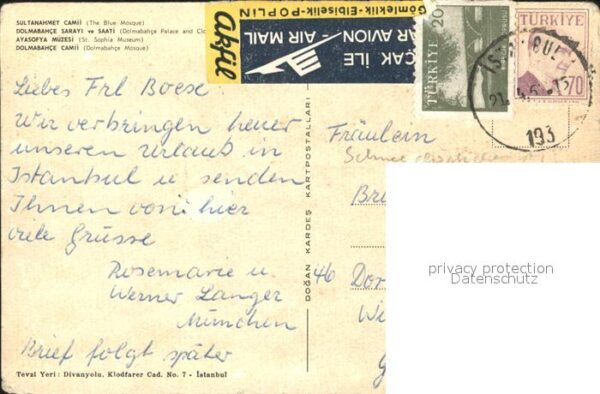 SULTANAHMET CAMİİ (The Blue Mosque)
DOLMABAHÇE SARAYI ve SAATİ (Dolmabahçe Palace and Clo
AYASOFYA MÜZESİ (St. Sophia Museum)
DOLMABAHÇE CAMİİ (Dolmabahçe Mosque)
Gömleklik-Elbiselik-POPLİN
Akfil
ÇAK İLE
AR AVION - AIR MAIL
TÜRKİYE 20
TÜRKİYE
70
193
Liebes Frl Boese
Wir verbringen heuer
unseren Urlaub in
Istanbul u. senden
Ihnen von hier
viele Grüsse
Rosemarie u.
Werner Langer
München
Brief folgt später
DOĞAN KARDEŞ KARTPOSTALLARI
Fräulein
Br
46 Dor
We
G
privacy protection
Datenschutz
Tevzi Yeri : Divanyolu, Klodfarer Cad. No. 7 - İstanbul